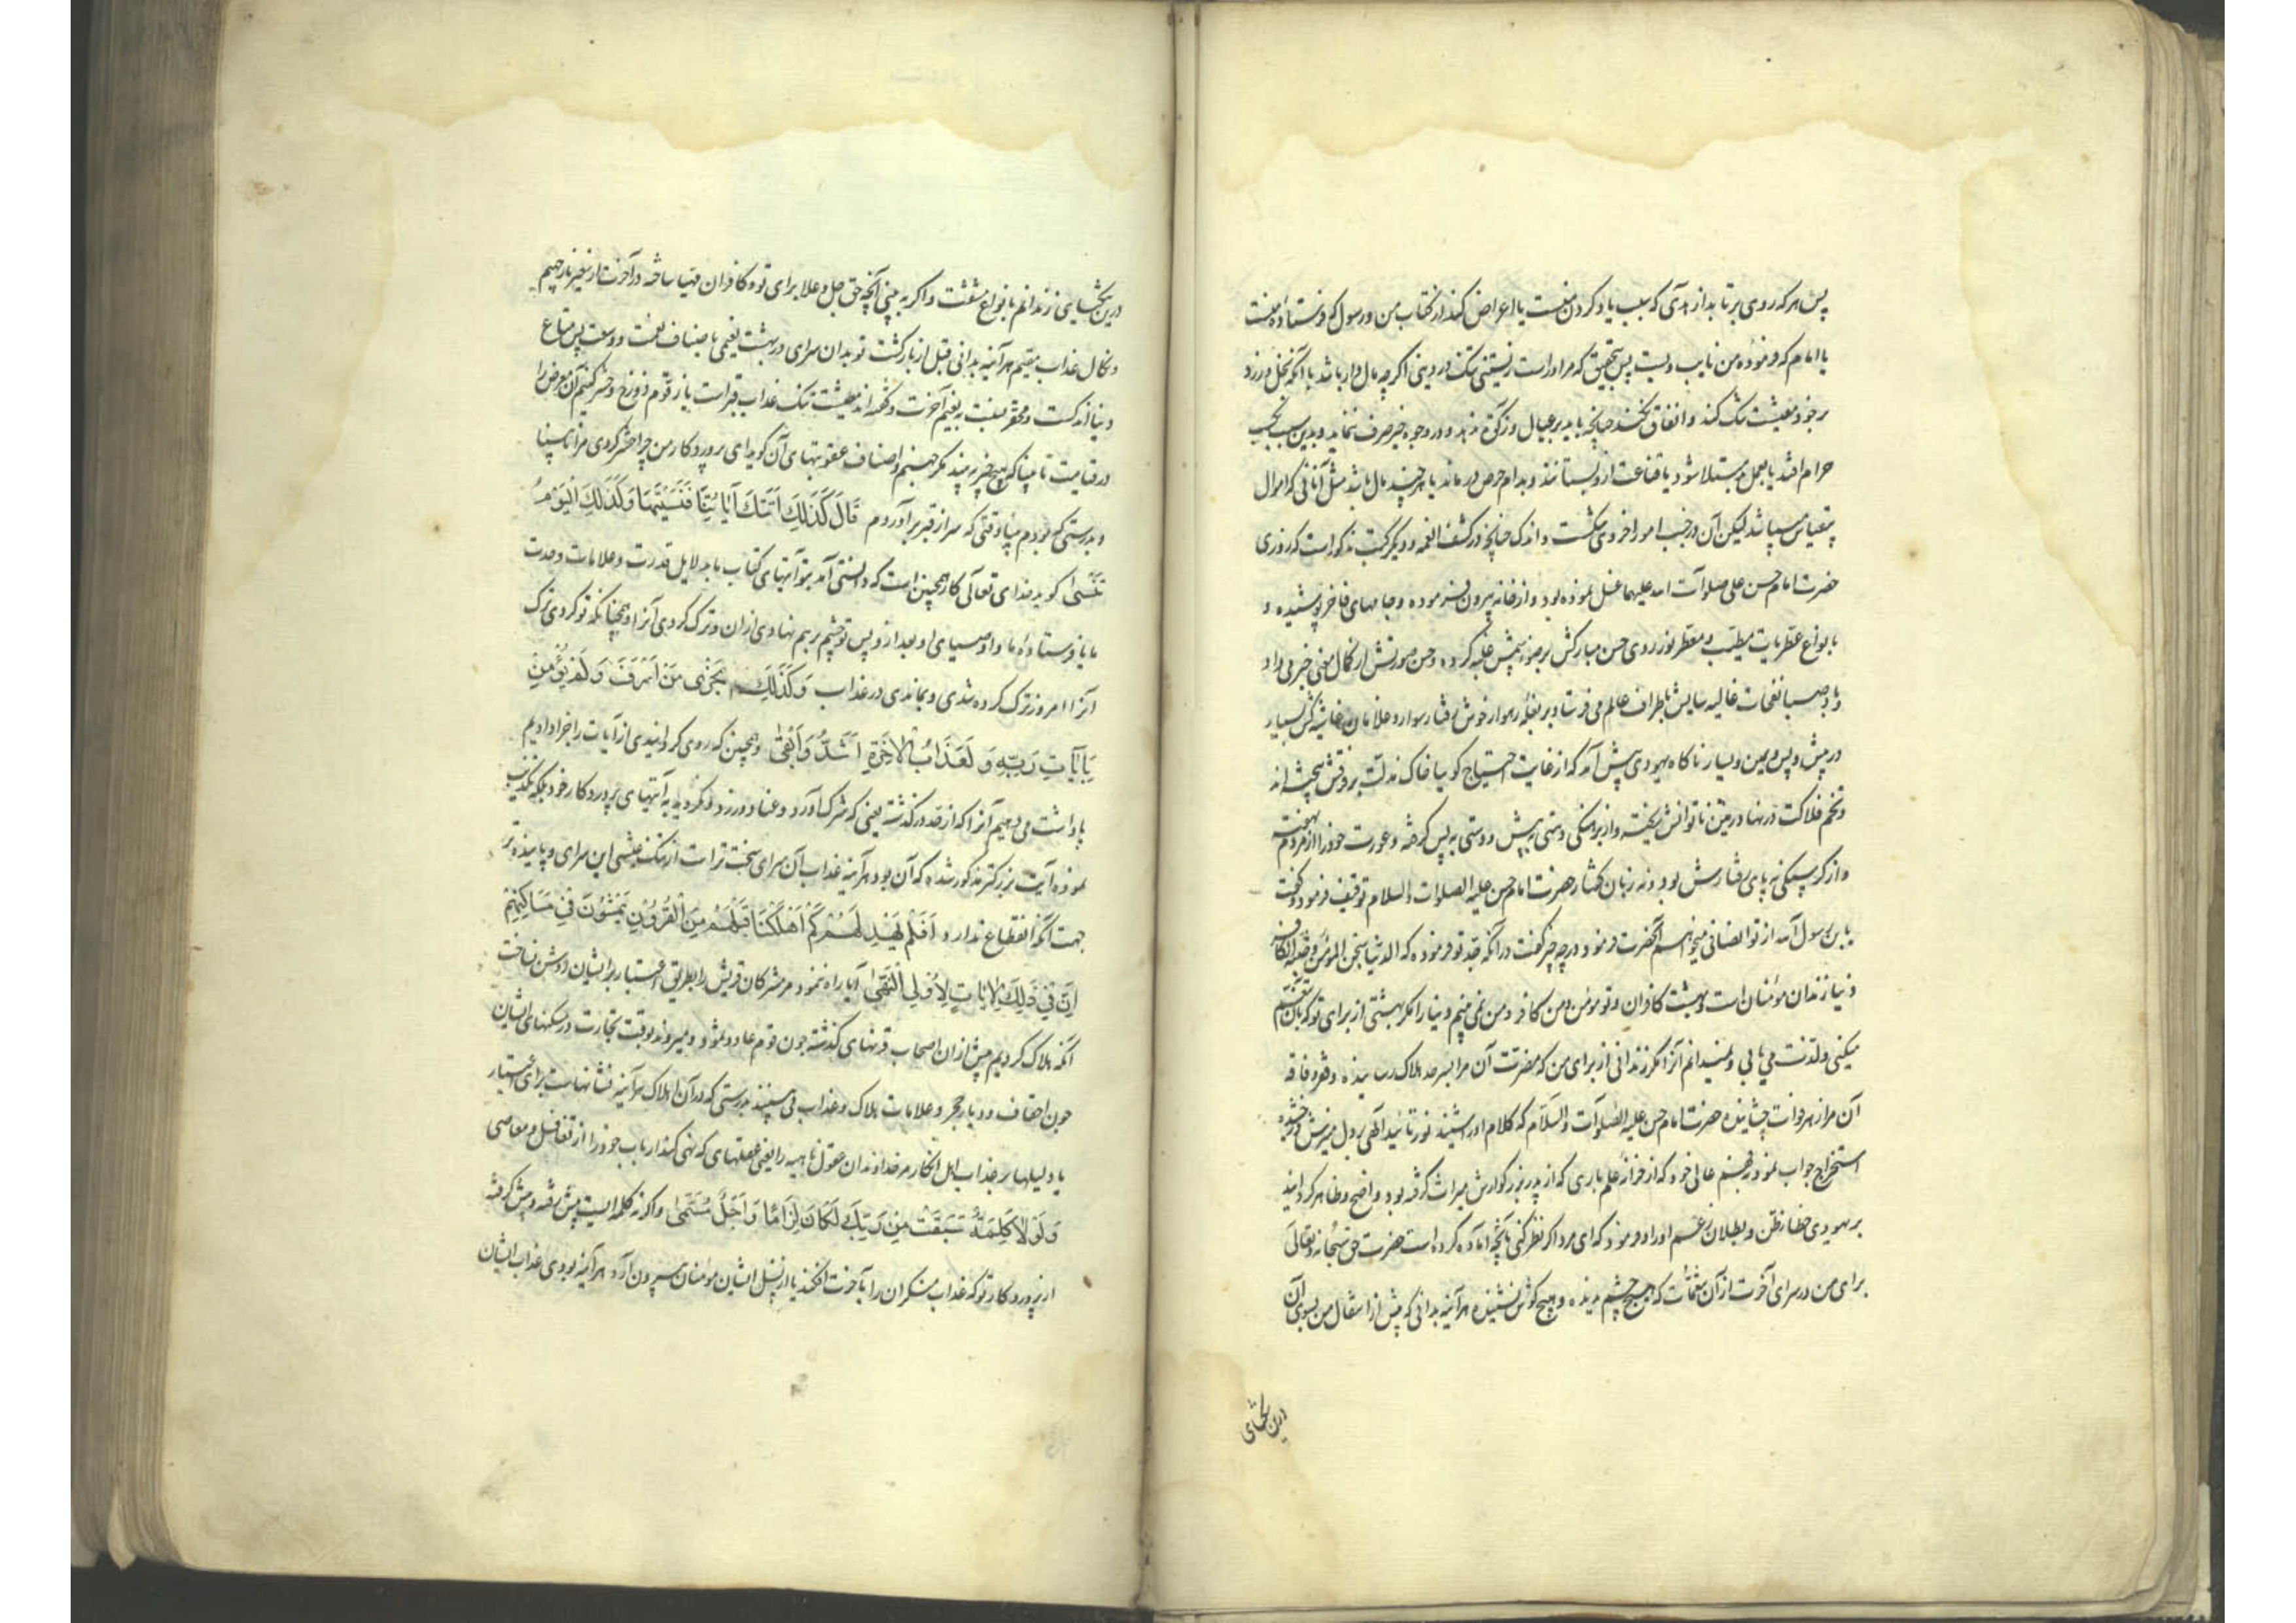 پس هر که روی برتابد از هدی که سبب یاد کردن منست یا اعراض کند از کتاب من و رسول که فرستاده منست
یا امام که فرموده من نایب ویست پس بتحقیق که مر او راست زیستنی تنک در دنیی اکر چه مال دار باشد با آنکه بخل ورزد
بر خود معیشت تنک کند و انفاق نکند چنانچه باید بر عیال و زکوة ندهد و در وجوه خیر صرف ننماید و بدین سبب بکسب
حرام افتد یا بعمل مبتلا شود یا قناعت ازو بستانند و بدام حرص در ماند یا هر چند مال باشد مثل آنانی که اموال
بیقیاس میباشد لیکن آن در جنب امور اخروی تنکست و اندک چنانچه در کشف الغمه و دیکر کتب مذکور است که روزی
حضرت امام حسن علی صلوات الله علیهما غسل نموده بود و از خانه بیرون فرموده و جامهای فاخر پوشیده و
بانواع عطریات مطیب و معطر نور روی حسن مبارکش بر ضوء شمس غلبه کرده و حسن صورتش از کمال معنی خبر می داد
و باد صبا نفحات غالیه سایش باطراف عالم می فرستاد بر بغله رهوار خوش رفتار سوار و غلامان و غاشیه کش بسیار
در پیش و پس و یمین و یسار ناکاه یهودی پیش آمد که از غایت احتیاج کویا خاک مذلت بر فرقش بیخته اند
و تخم فلاکت در نهاد زمین ناتوانش ریخته و از برهنکی دستی به پیش و دستی به پس کرفته و عورت خود را از مردم نهفته
و از کرسنکی نه پای رفتارش بود و نه زبان کفتار حضرت امام حسن علیه الصلوات و السلام توقف فرمود و کفت
یا بن رسول الله از تو انصافی میخواهم آنحضرت فرمود در چه چیز کفت در آنکه جد تو فرموده که الدنیا سجن المؤمن و جنة الکافر
دنیا زندان مؤمنان است و بهشت کافران و تو مؤمن و من کافر و من نمی بینم دنیا را مکر بهشتی از برای تو که بآن تنعم
میکنی و لذت می یابی و نمیدانم آنرا مکر زندانی از برای من که مضرت آن مرا بسرحد هلاک رسانیده و فقر و فاقه
آن مرا زهر فوات چشانیده حضرت امام حسن علیه الصلوات و السلام که کلام او را شنید نور تائید الهی بر دل منیرش درخشیده
استخراج جواب نمود بفهم عالی خود که از خزانه علم باری که از پدر بزرکوارش میراث کرفته بود و واضح و ظاهر کردانید
بر یهودی خطا ظن و بطلان زعم او را و فرمود که ای مرد اکر نظر کنی بآنچه آماده کرده است حضرت حق سبحانه و تعالی
برای من در سرای آخرت از آن نعمات که هیچ چشم ندیده و هیچ کوش نشنیده هر آینه بدانی که پیش از انتقال من بسوی آن
درین بخشای
درین بخشایی زندانم بانواع مشقت و اکر به بینی آنچه حق جل و علا برای تو و کافران مهیا ساخته در آخرت از سعیر نار جهیم
و نکال عذاب مقیم هر آینه بدانی قبل از بازکشت تو بدان سرای در بهشت نعیمی باصناف نعمت و وسعت پس متاع
دنیا اندکست و محقر بنسبت به نعیم آخرت و کفته اند معیشت تنک عذاب قبر است یا زقوم دوزخ و حشر کنیم آن معرض را
در قیامت نابینا که هیچ چیز به نبیند مکر جهنم و اصناف عقوبتهای آن کوید ای پروردکار من چرا حشر کردی مرا نابینا
و بدرستی که بودم بینا وقتی که سر از قبر برآوردم قَالَ كَذَلِكَ اَتَتْكَ آيَاتُنَا فَنَسِيتَهَا وَكَذَلِكَ الْيَوْمَ
تُنْسٰى کوید خدای تعالی کار همچنین است که دانستی آمد بتو آیتهای کتاب ما بدلایل قدرت و علامات وحدت
ما با فرستاده ما و اوصیای او بعد ازو پس تو چشم برهم نهادی از ان و ترک کردی آنرا و همچنانکه تو کردی ترک
آنرا امروز ترک کرده شدی و بماندی در عذاب وَكَذَلِكَ نَجْزِى مَنْ اَسْرَفَ وَلَمْ يُؤْمِنْ
بِآيَاتِ رَبِّهِ وَلَعَذَابُ الْاٰخِرَةِ اَشَدُّ وَاَبْقٰى و همچنین که روی کرداننده از آیات را جزا دادیم
پاداشت می دهیم آنرا که از حد در کذشته یعنی که شرک آورد و عناد ورزد و نکرود به آیتهای پروردکار خود بلکه تکذیب
نموده آیت بزرکتر مذکور شده که آن بود هر آینه عذاب آن سرای سخت تر است از تنک عیشی این سرای و پاینده تر
جهت آنکه انقطاع ندارد اَفَلَمْ يَهْدِ لَهُمْ كَمْ اَهْلَكْنَا قَبْلَهُمْ مِنَ الْقُرُونِ يَمْشُونَ فِى مَسَاكِنِهِمْ
اِنَّ فِى ذَلِكَ لَاٰيَاتٍ لِاُولِى النُّهٰى آیا راه ننمود مر مشرکان قریش را بطریق اعتبار بر ایشان روشن نساخت
آنکه هلاک کردیم پیش از ان اصحاب قرنهای کذشته چون قوم عاد و ثمود و میروند بوقت تجارت در مسکنهای ایشان
چون احقاف و دیار حجر و علامات هلاک و عذاب می بینند بدرستی که در آن اهلاک هر آینه نشانهاست برای اعتبار
یا دلیلها بر عذاب اهل انکار مر خداوندان عقول ناهیه را یعنی عقلهای که نهی کند ارباب خود را از تغافل و معاصی
وَلَوْلَا كَلِمَةٌ سَبَقَتْ مِنْ رَبِّكَ لَكَانَ لِزَامًا وَاَجَلٌ مُسَمًّى و اکر نه کلمه ایست پیش رفته و پیش کرفته
از پروردکار تو که عذاب منکران را بآخرت افکند یا از نسل ایشان مومنان بیرون آرد هر آینه بودی عذاب ایشان